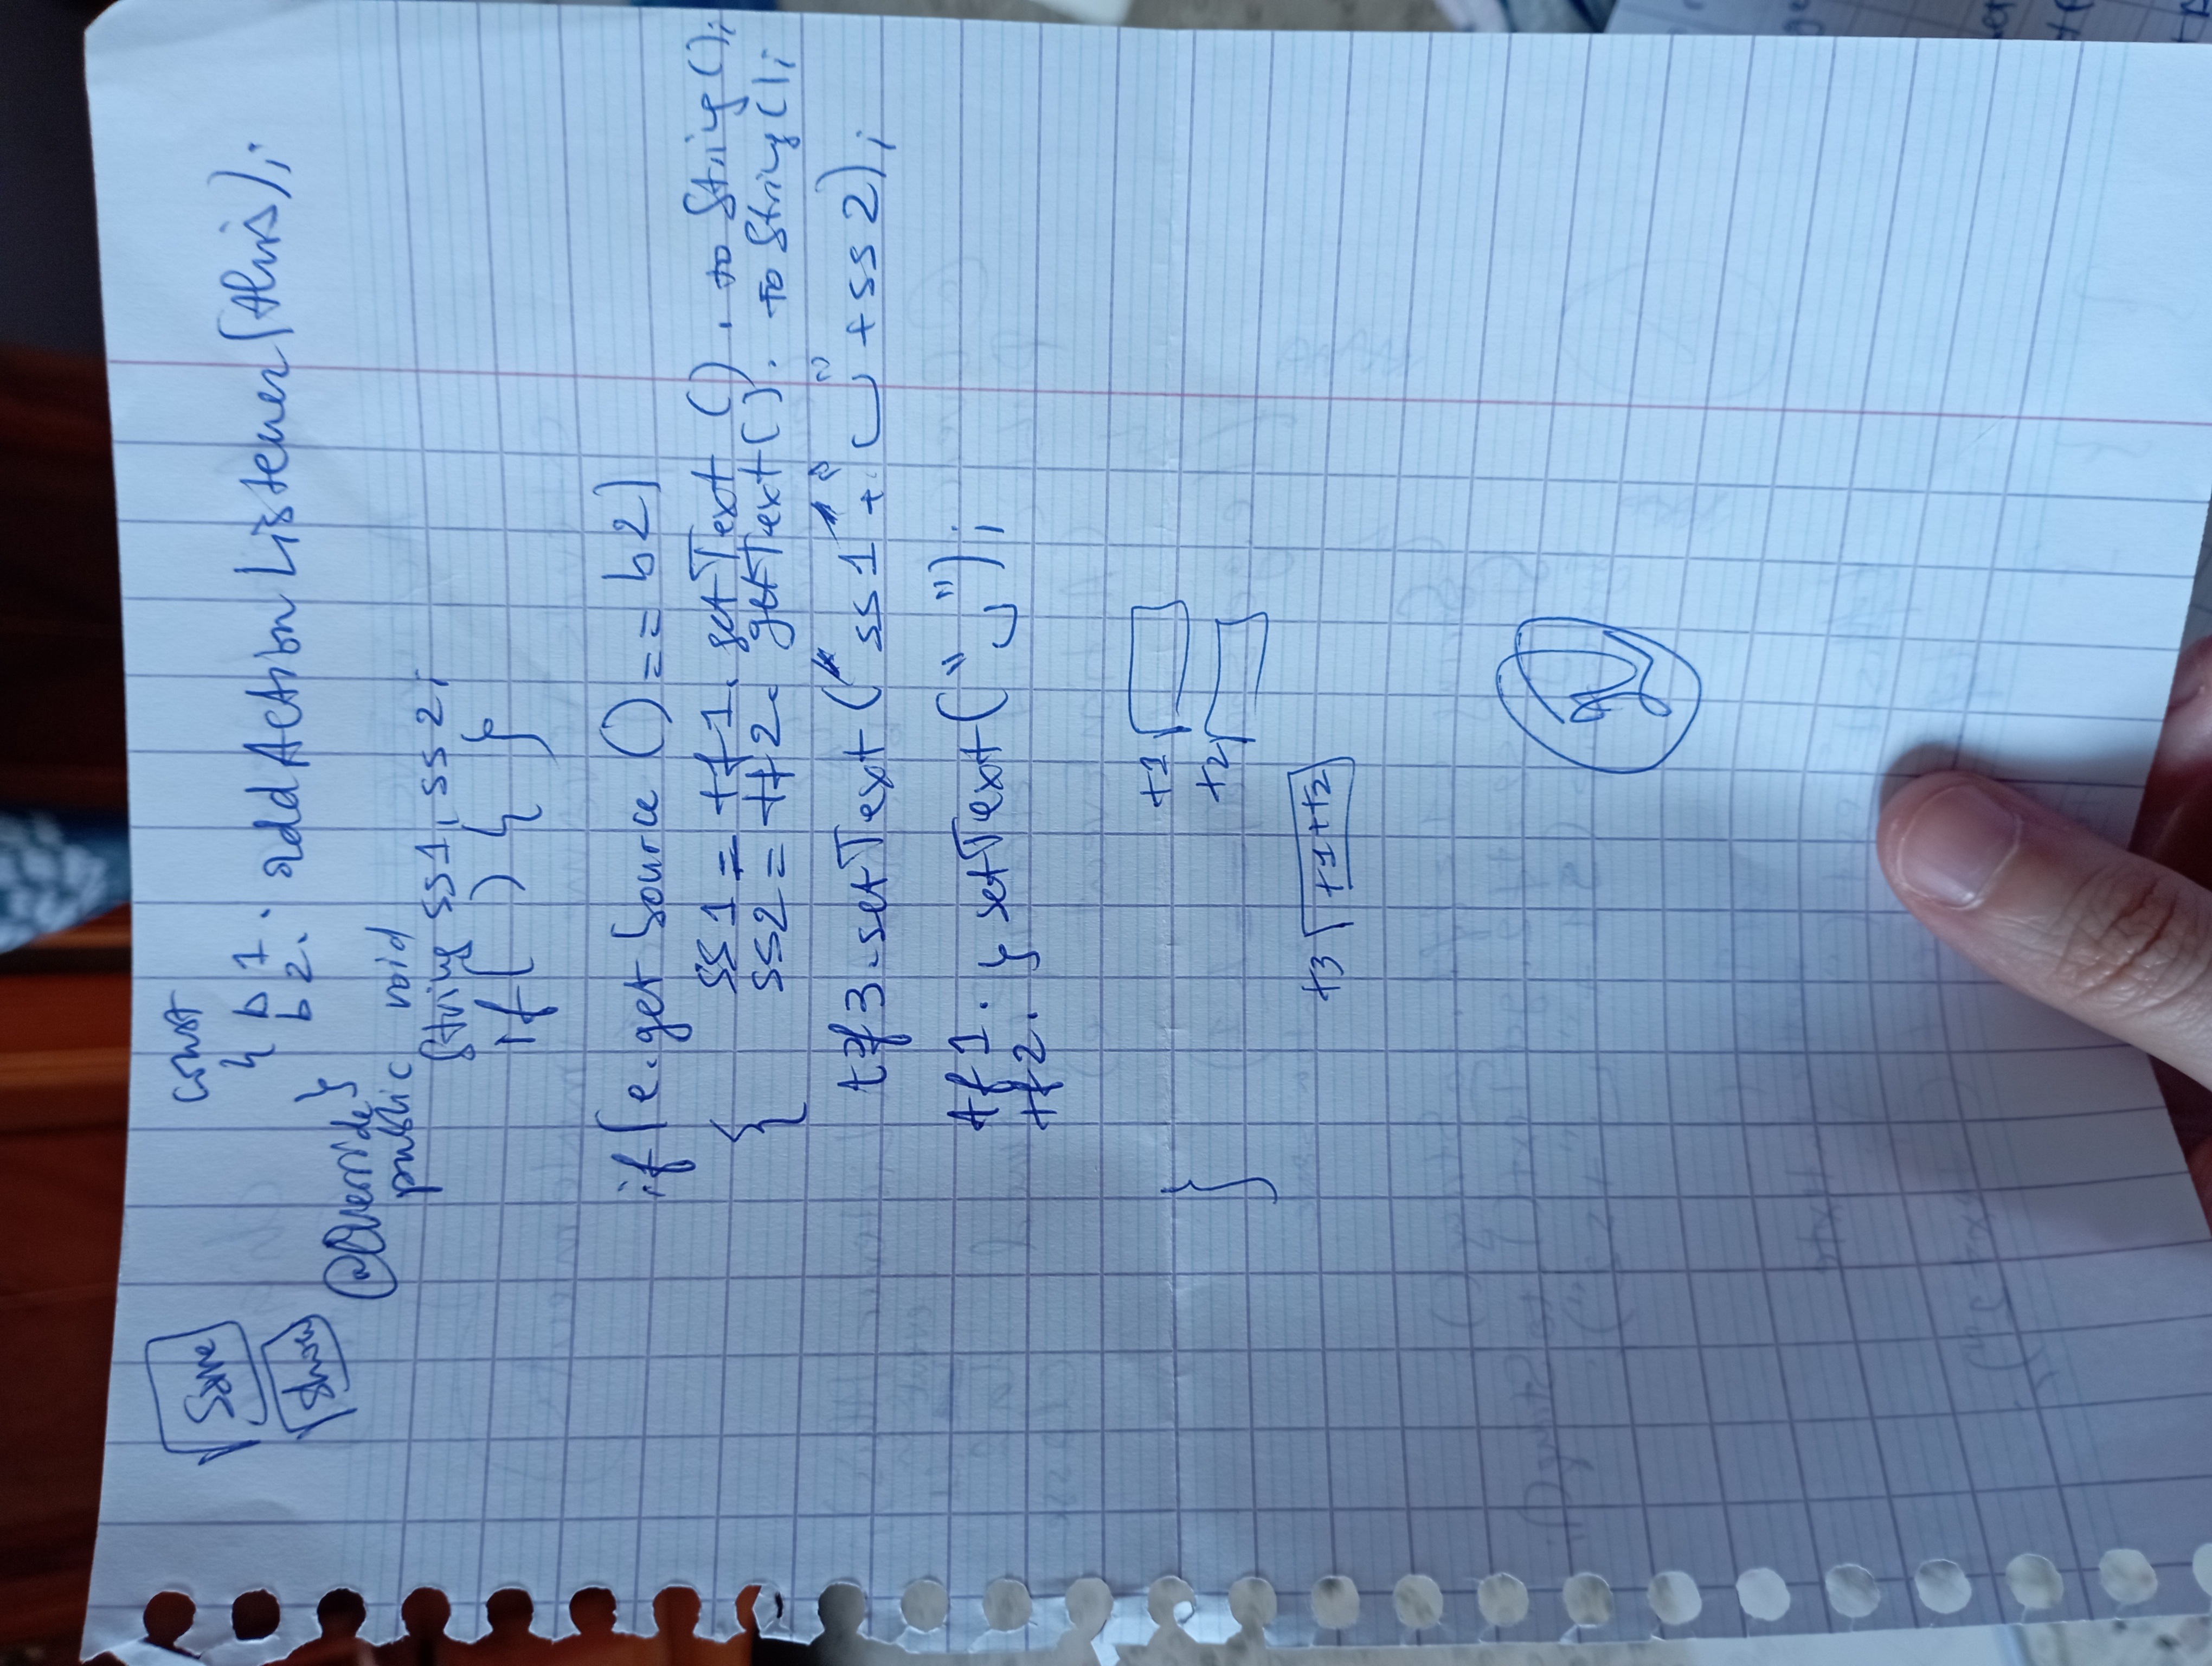 Save
Show
const
{ b1.
b2. addActionListener(this);
}
@Override
public void
String ss1, ss2;
if( ) { }
if(e.getSource()==b2)
{ ss1 = tf1.getText().toString();
ss2 = tf2.getText().toString();
tf3.setText(ss1+" "+ss2);
tf1. } setText(" ");
tf2.
}
t1
t2
t3 t1+t2
2